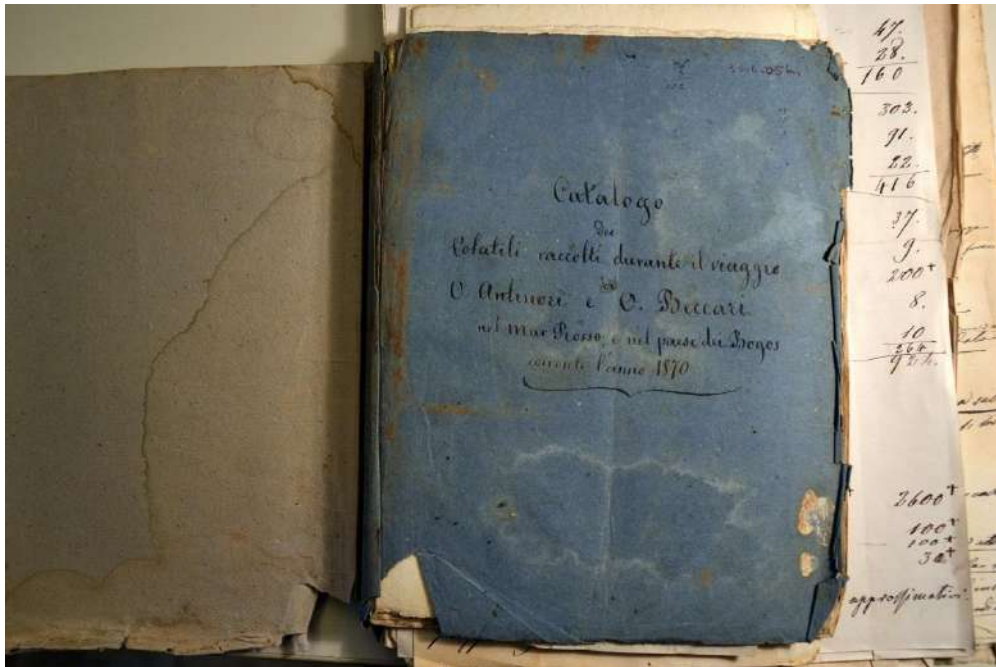 Catalogo
dei
Volatili raccolti durante il viaggio
di
O. Antinori e O. Beccari
nel mar Rosso, e nel paese dei Bogos
corrente l'anno 1870
47.
28.
160
303.
91.
22.
416
37.
9.
200+
8.
10
264
924.
2600+
100+
100+
30+
approssimativi.